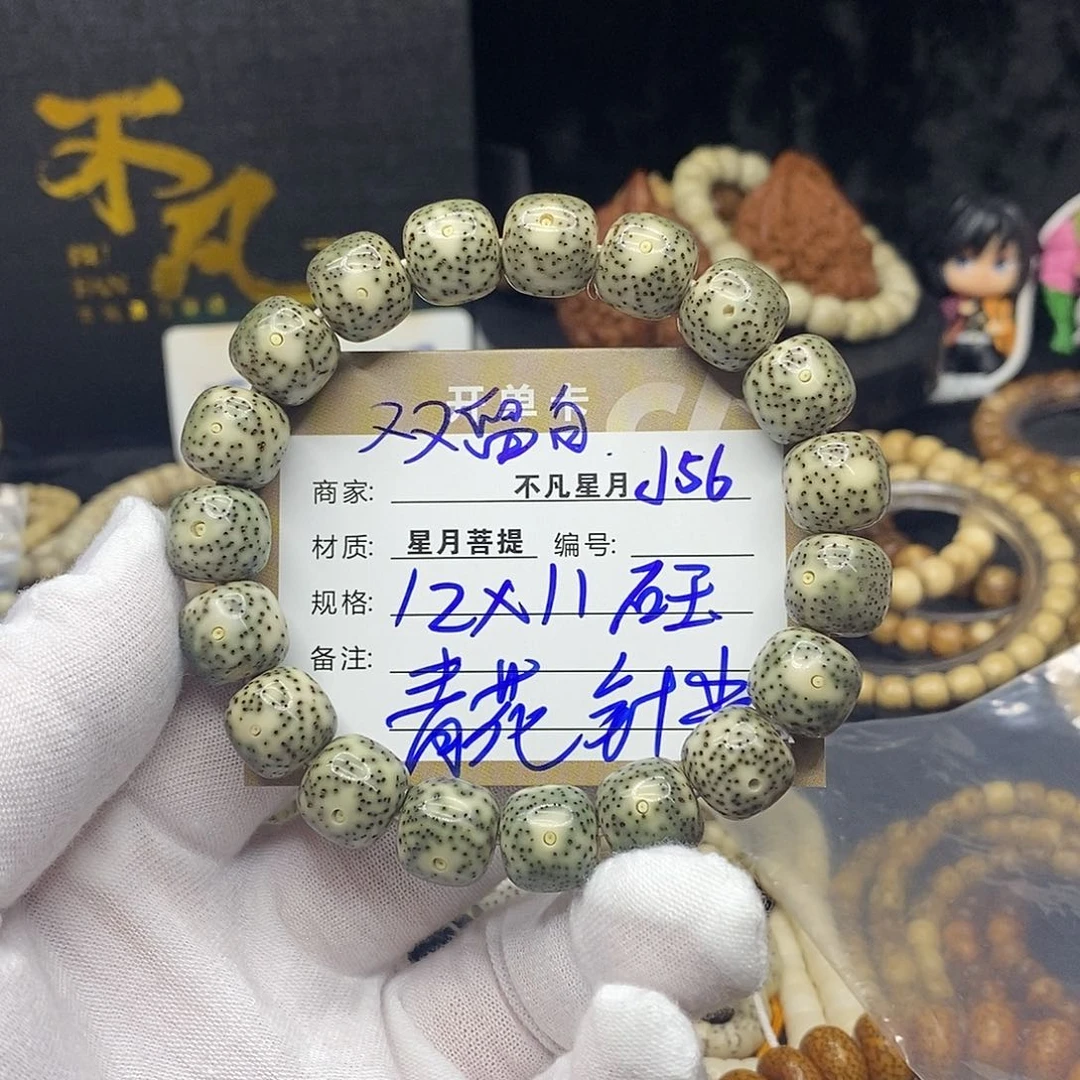 不凡
开单卡
双盘白
商家: 不凡星月 J56
材质: 星月菩提 编号:
规格: 12X11
备注:
青花 针